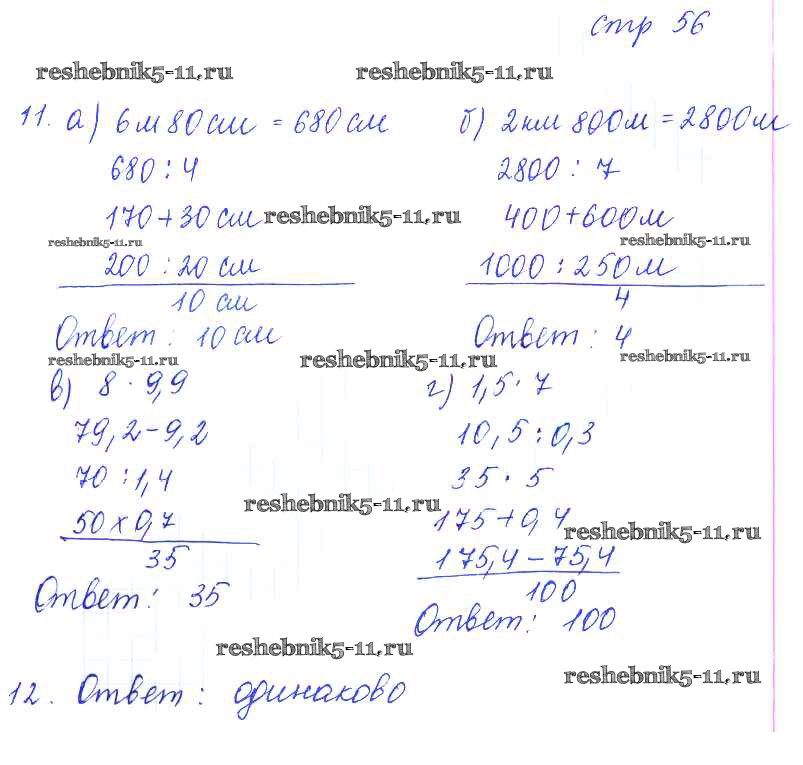 стр 56
reshebnik5-11.ru reshebnik5-11.ru
11. а) 6 м 80 см = 680 см
680 : 4
170 + 30 см reshebnik5-11.ru
reshebnik5-11.ru
200 : 20 см
10 см
Ответ : 10 см
reshebnik5-11.ru
б) 2 км 800 м = 2800 м
2800 : 7
400 + 600 м
reshebnik5-11.ru
1000 : 250 м
4
Ответ : 4
reshebnik5-11.ru reshebnik5-11.ru
в) 8 · 9,9
79,2 - 9,2
70 : 1,4
reshebnik5-11.ru
50 х 0,7
35
Ответ: 35
г) 1,5 · 7
10,5 : 0,3
35 · 5
175 + 0,4
reshebnik5-11.ru
175,4 - 75,4
100
Ответ: 100
reshebnik5-11.ru
reshebnik5-11.ru
12. Ответ : одинаково